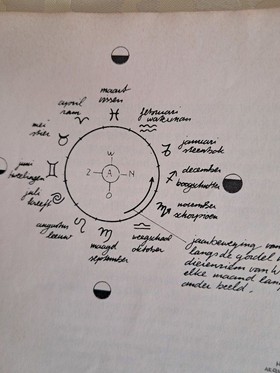 maart
vissen
april
ram
februari
waterman
mei
stier
januari
steenbok
W
Z
A
N
O
december
boogschutter
juni
tweelingen
juli
kreeft
november
schorpioen
augustus
leeuw
maagd
september
weegschaal
oktober
jaarbeweging van
langs de gordel
dierenriem van W
elke maand
ander beeld.